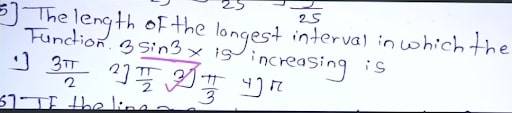 25    25
5] The length of the longest interval in which the
Function. 3 sin3x is increasing is
1] 3π/2 2] π/2 3] π/3 4] π
6] If the line